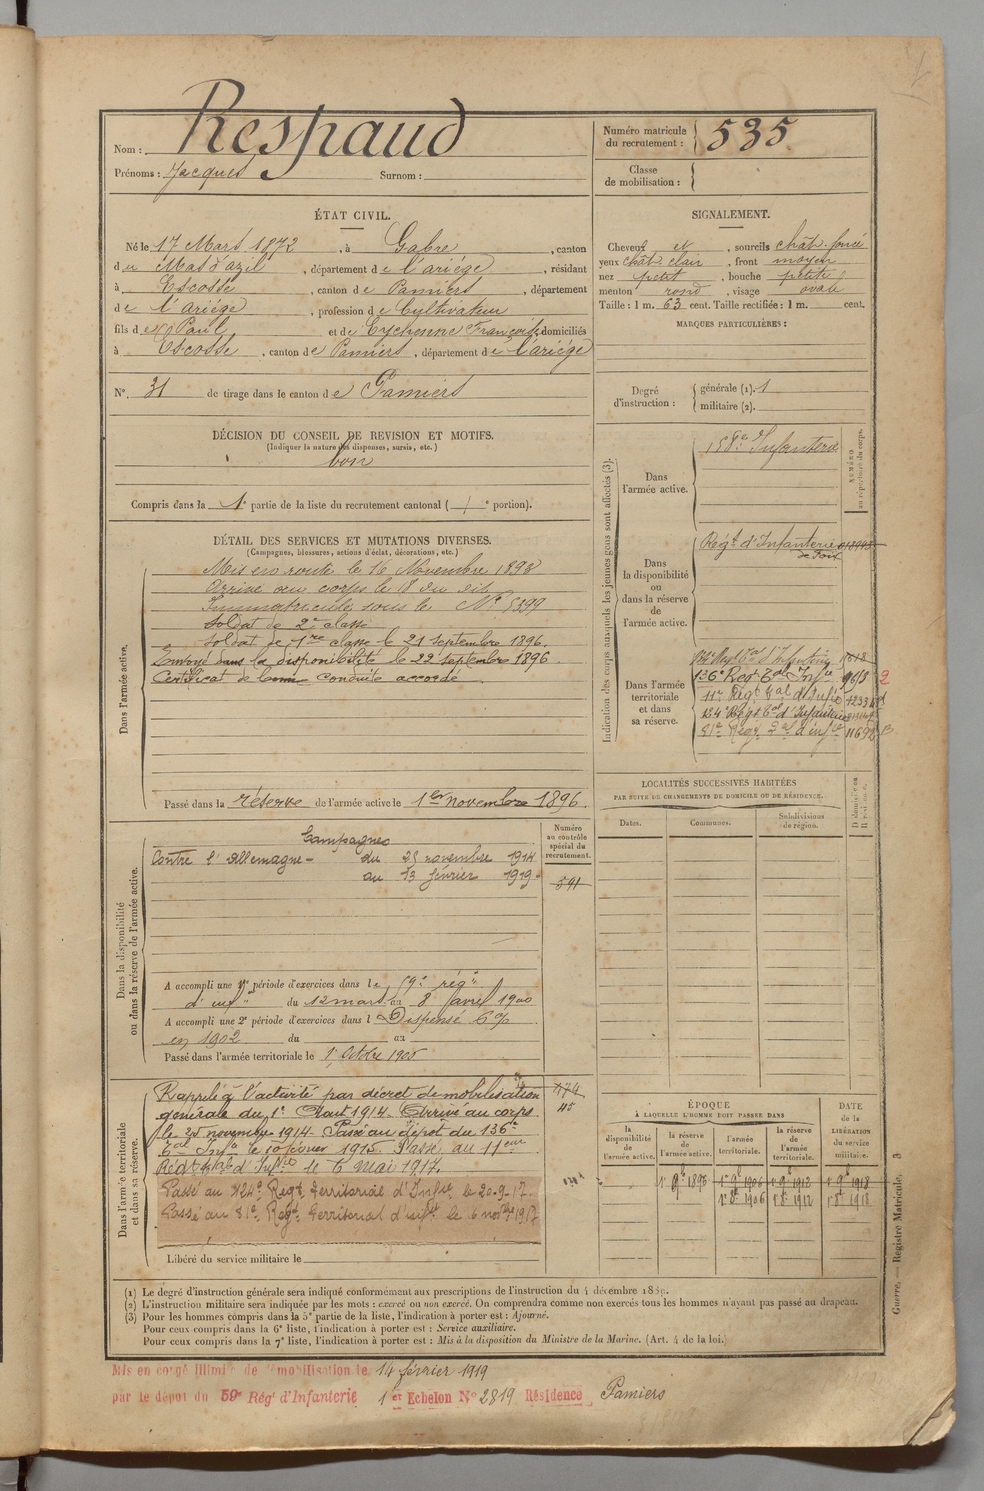 Nom : Respaud
Prénoms : Jacques Surnom :
Numéro matricule du recrutement : 535
Classe de mobilisation :
ÉTAT CIVIL.
Né le 17 Mars 1872, à Gabre, canton
du Mas d'azil, département de l'ariége, résidant
à Escosse, canton de Pamiers, département
de l'Ariége, profession de Cultivateur
fils de Paul et de Eychenne Françoise, domiciliés
à Escosse, canton de Pamiers, département de l'ariége
N° 31 de tirage dans le canton de Pamiers
SIGNALEMENT.
Cheveux et, sourcils chât. foncé
yeux chât. clair, front moyen
nez petit, bouche petite
menton rond, visage ovale
Taille : 1 m. 63 cent. Taille rectifiée : 1 m. cent.
MARQUES PARTICULIÈRES :
Degré d'instruction : générale (1). 1
militaire (2).
DÉCISION DU CONSEIL DE REVISION ET MOTIFS.
(Indiquer la nature des dispenses, sursis, etc.)
bon
Compris dans la 1e partie de la liste du recrutement cantonal ( / e portion).
DÉTAIL DES SERVICES ET MUTATIONS DIVERSES.
(Campagnes, blessures, actions d'éclat, décorations, etc.)
Dans l'armée active.
Mis en route le 16 Novembre 1893
Arrivé au corps le 18 du dit
Immatriculé sous le N° 5399
Soldat de 2e classe
Soldat de 1re classe le 21 septembre 1896.
Envoyé dans la disponibilité le 22 septembre 1896.
Certificat de bonne conduite accordé.
Passé dans la réserve de l'armée active le 1er novembre 1896.
Indication des corps auxquels les jeunes gens sont affectés (3).
NUMÉRO au répertoire du corps.
Dans l'armée active.
158e Infanterie
Dans la disponibilité ou dans la réserve de l'armée active.
Régt d'Infanterie
de Foix
Dans l'armée territoriale et dans sa réserve.
136e Régt Tal Infie
11e Régt Tal d'Infie
124e Régt Tal d'Infanterie
81e Régt Tal d'infie 11692
LOCALITÉS SUCCESSIVES HABITÉES
PAR SUITE DE CHANGEMENTS DE DOMICILE OU DE RÉSIDENCE.
Dates. Communes. Subdivisions de région. D domicile ou R résidence.
Dans la disponibilité ou dans la réserve de l'armée active.
Numéro au contrôle spécial du recrutement.
591
Campagnes
Contre l'Allemagne - du 25 novembre 1914
au 13 février 1919.
A accompli une 1re période d'exercices dans le 59e régt
d'infie du 12 mars au 8 Avril 1900
A accompli une 2e période d'exercices dans l Dispensé 6%
en 1902 du au
Passé dans l'armée territoriale le 1 Octobre 1906
Dans l'armée territoriale et dans sa réserve.
Rappelé à l'activité par décret de mobilisation
générale du 1er Août 1914. Arrivé au corps
le 25 novembre 1914. Passé au dépôt du 136e
Tal Infie le 10 février 1915. Passé au 11eme
Régt tal d'Infie le 6 mai 1917.
Passé au 124e Regt territorial d'Infie le 20-9-17.
Passé au 81e Regt territorial d'infie le 6 novbre 1917
Libéré du service militaire le
ÉPOQUE
À LAQUELLE L'HOMME DOIT PASSER DANS
DATE de la LIBÉRATION du service militaire.
la disponibilité de l'armée active. la réserve de l'armée active. l'armée territoriale. la réserve de l'armée territoriale.
1er 9bre 1896 1er 9bre 1906 1er 9bre 1912 1er 9bre 1918
1er 8bre 1906 1er 8bre 1912 1er 8bre 1918
(1) Le degré d'instruction générale sera indiqué conformément aux prescriptions de l'instruction du 4 décembre 1889.
(2) L'instruction militaire sera indiquée par les mots : exercé ou non exercé. On comprendra comme non exercés tous les hommes n'ayant pas passé au drapeau.
(3) Pour les hommes compris dans la 5e partie de la liste, l'indication à porter est : Ajourné.
Pour ceux compris dans la 6e liste, l'indication à porter est : Service auxiliaire.
Pour ceux compris dans la 7e liste, l'indication à porter est : Mis à la disposition du Ministre de la Marine. (Art. 4 de la loi.)
Guerre. — Registre Matricule. 3
Mis en congé illimité de démobilisation le 14 février 1919
par le dépôt du 59e Régt d'Infanterie 1er Echelon N° 2819 Résidence Pamiers